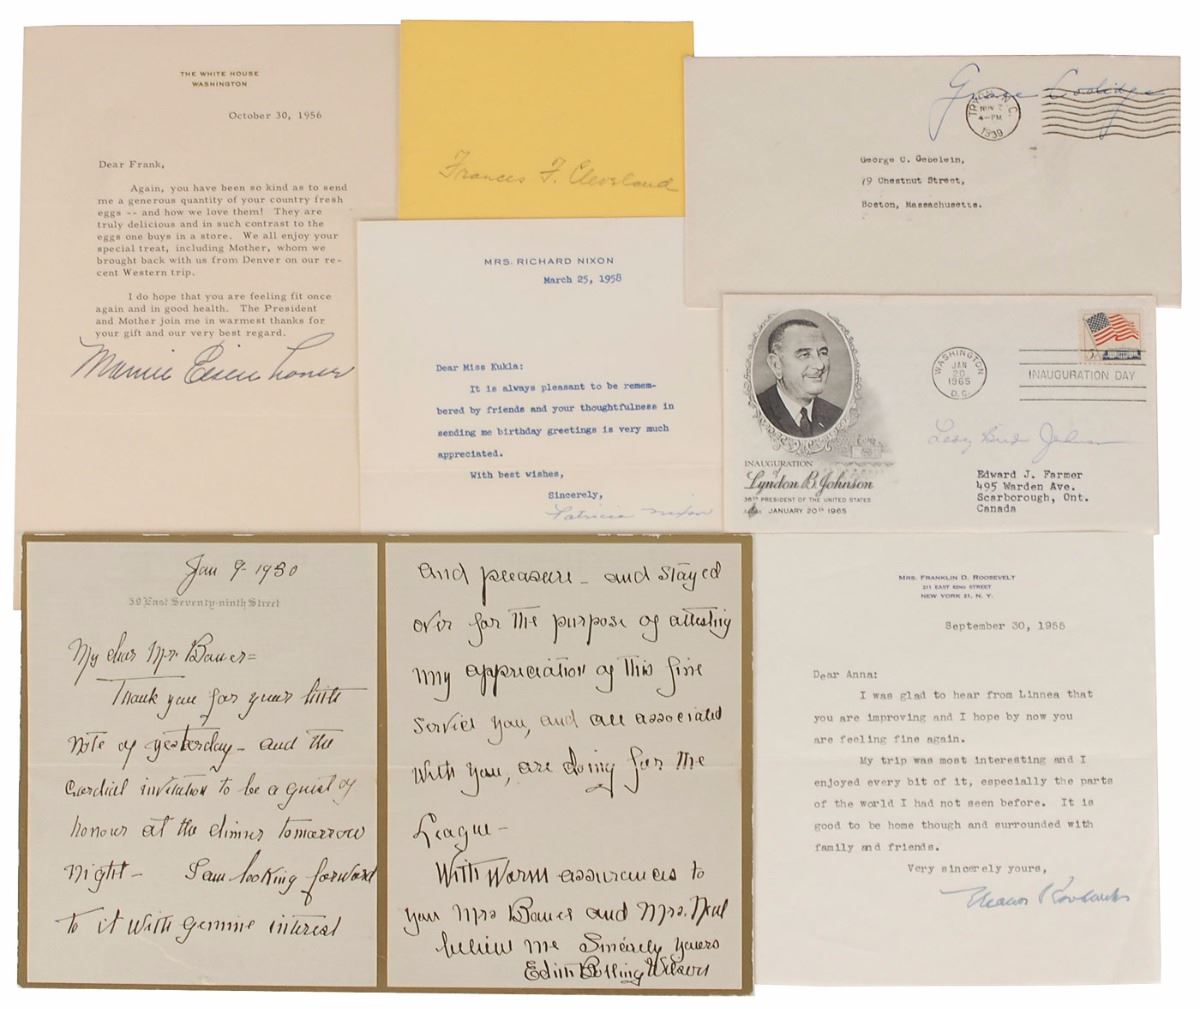 THE WHITE HOUSE
WASHINGTON
October 30, 1956
Dear Frank,
Again, you have been so kind as to send
me a generous quantity of your country fresh
eggs -- and how we love them! They are
truly delicious and in such contrast to the
eggs one buys in a store. We all enjoy your
special treat, including Mother, whom we
brought back with us from Denver on our re-
cent Western trip.
I do hope that you are feeling fit once
again and in good health. The President
and Mother join me in warmest thanks for
your gift and our very best regard.
Mamie Eisenhower
Frances F. Cleveland
Grace Coolidge
TRYON, N.C.
NOV 7
4-PM
1939
George C. Gebelein,
79 Chestnut Street,
Boston, Massachusetts.
MRS. RICHARD NIXON
March 25, 1958
Dear Miss Kukla:
It is always pleasant to be remem-
bered by friends and your thoughtfulness in
sending me birthday greetings is very much
appreciated.
With best wishes,
Sincerely,
Patricia Nixon
WASHINGTON
JAN
20
1965
D.C.
INAUGURATION DAY
Lady Bird Johnson
INAUGURATION
Lyndon B. Johnson
36TH PRESIDENT OF THE UNITED STATES
JANUARY 20TH 1965
Edward J. Farmer
495 Warden Ave.
Scarborough, Ont.
Canada
Jan 9-1930
39 East Seventy-ninth Street
My dear Mr. Bauer=
Thank you for your little
note of yesterday - and the
cordial invitation to be a guest of
honour at the dinner tomorrow
night - I am looking forward
to it with genuine interest
and pleasure - and stayed
over for the purpose of attesting
my appreciation of this fine
service you, and all associated
with you, are doing for the
League -
With warm assurances to
you Mrs Bauer and Mrs. Neal
believe me Sincerely yours
Edith Bolling Wilson
MRS. FRANKLIN D. ROOSEVELT
211 EAST 62ND STREET
NEW YORK 21, N. Y.
September 30, 1955
Dear Anna:
I was glad to hear from Linnea that
you are improving and I hope by now you
are feeling fine again.
My trip was most interesting and I
enjoyed every bit of it, especially the parts
of the world I had not seen before. It is
good to be home though and surrounded with
family and friends.
Very sincerely yours,
Eleanor Roosevelt